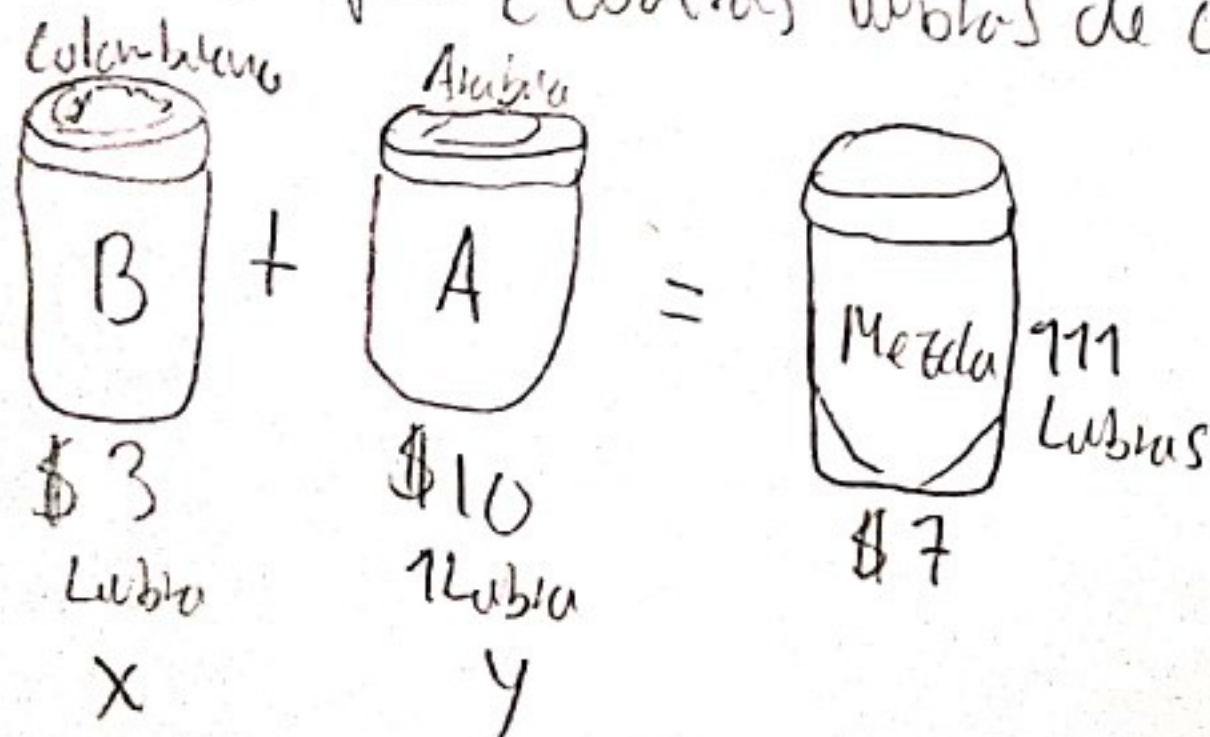 ¿Cuántas libras de
Colombiano Arabia
B + A = Mezcla 111
Libras
$3 $10 $7
Libra 1 Libra
x y